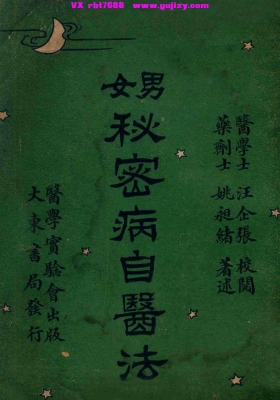 VX rbt7688    www.gujizy.com
男女
秘密病自醫法
醫學士 汪企張 校閱
藥劑士 姚昶緒 著述
醫學實驗會出版
大東書局發行